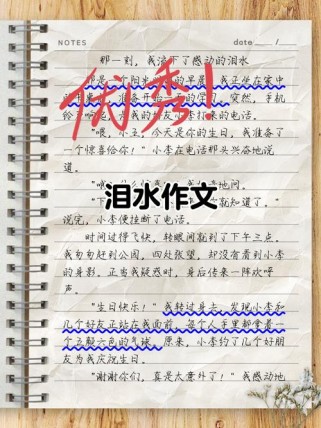 NOTES
date: /
那一刻,我流下了感动的泪水
那是一个阳光
的早晨,我正坐在家中
准备开始一
的学习。突然,手机
的好友小李打来的电话。
“喂,小王,今天是你的生日,我准备了
一个惊喜给你!”小李在电话那头兴奋地说
道。
地问。
就知道了。”
说完,小李便挂断了电话。
时间过得飞快,转眼间就到了下午三点。
我匆匆赶到公园,四处张望,却没有看到小李
的身影。正当我疑惑时,身后传来一阵欢呼
声。
“生日快乐!”我转过身去,发现小李和
几个好友正站在我面前,每个人手里都拿着一
个五颜六色的气球。原来,小李约了几个好朋
友为我庆祝生日。
“谢谢你们,真是太意外了!”我感动地
优秀!
泪水作文